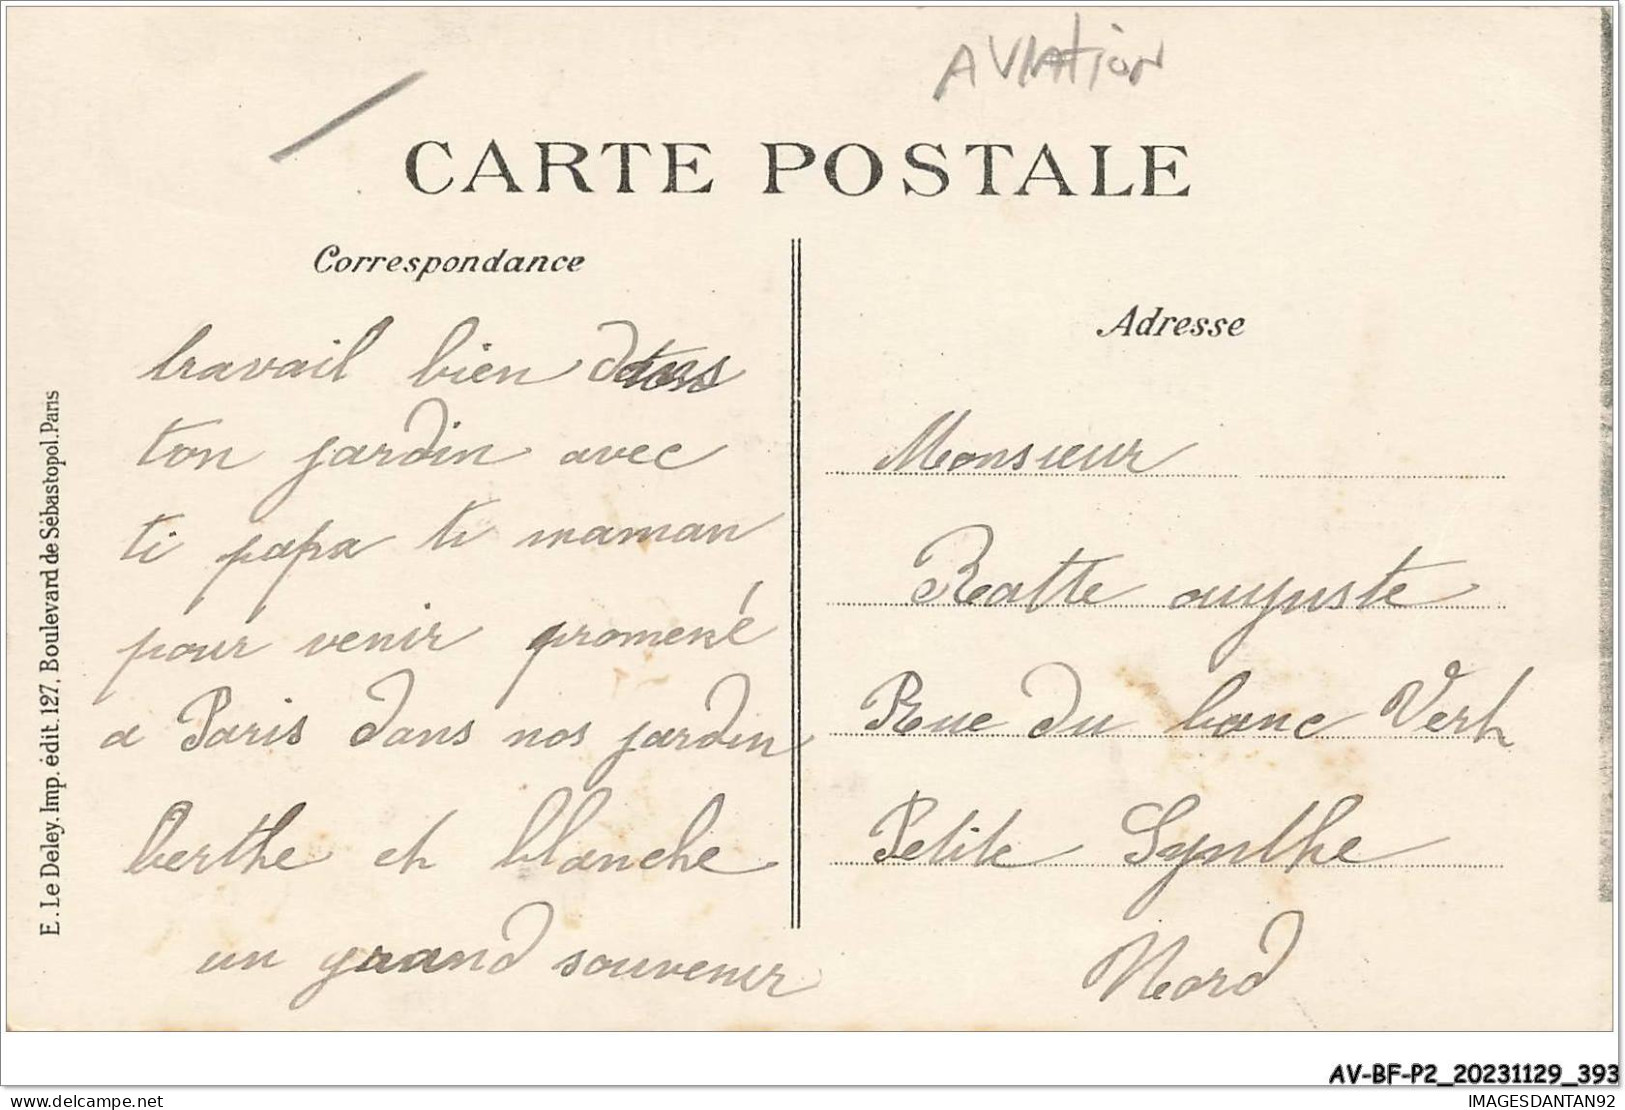 AVIATION
CARTE POSTALE
Correspondance
Adresse
travail bien dans
ton jardin avec
ti papa ti maman
pour venir promené
a Paris dans nos jardin
berthe et blanche
un grand souvenir
Monsieur
Ratte auguste
Rue du banc Vert
Petite Synthe
Nord
E. Le Deley. Imp. édit. 127, Boulevard de Sébastopol. Paris
AV-BF-P2_20231129_393
delcampe.net
IMAGESDANTAN92